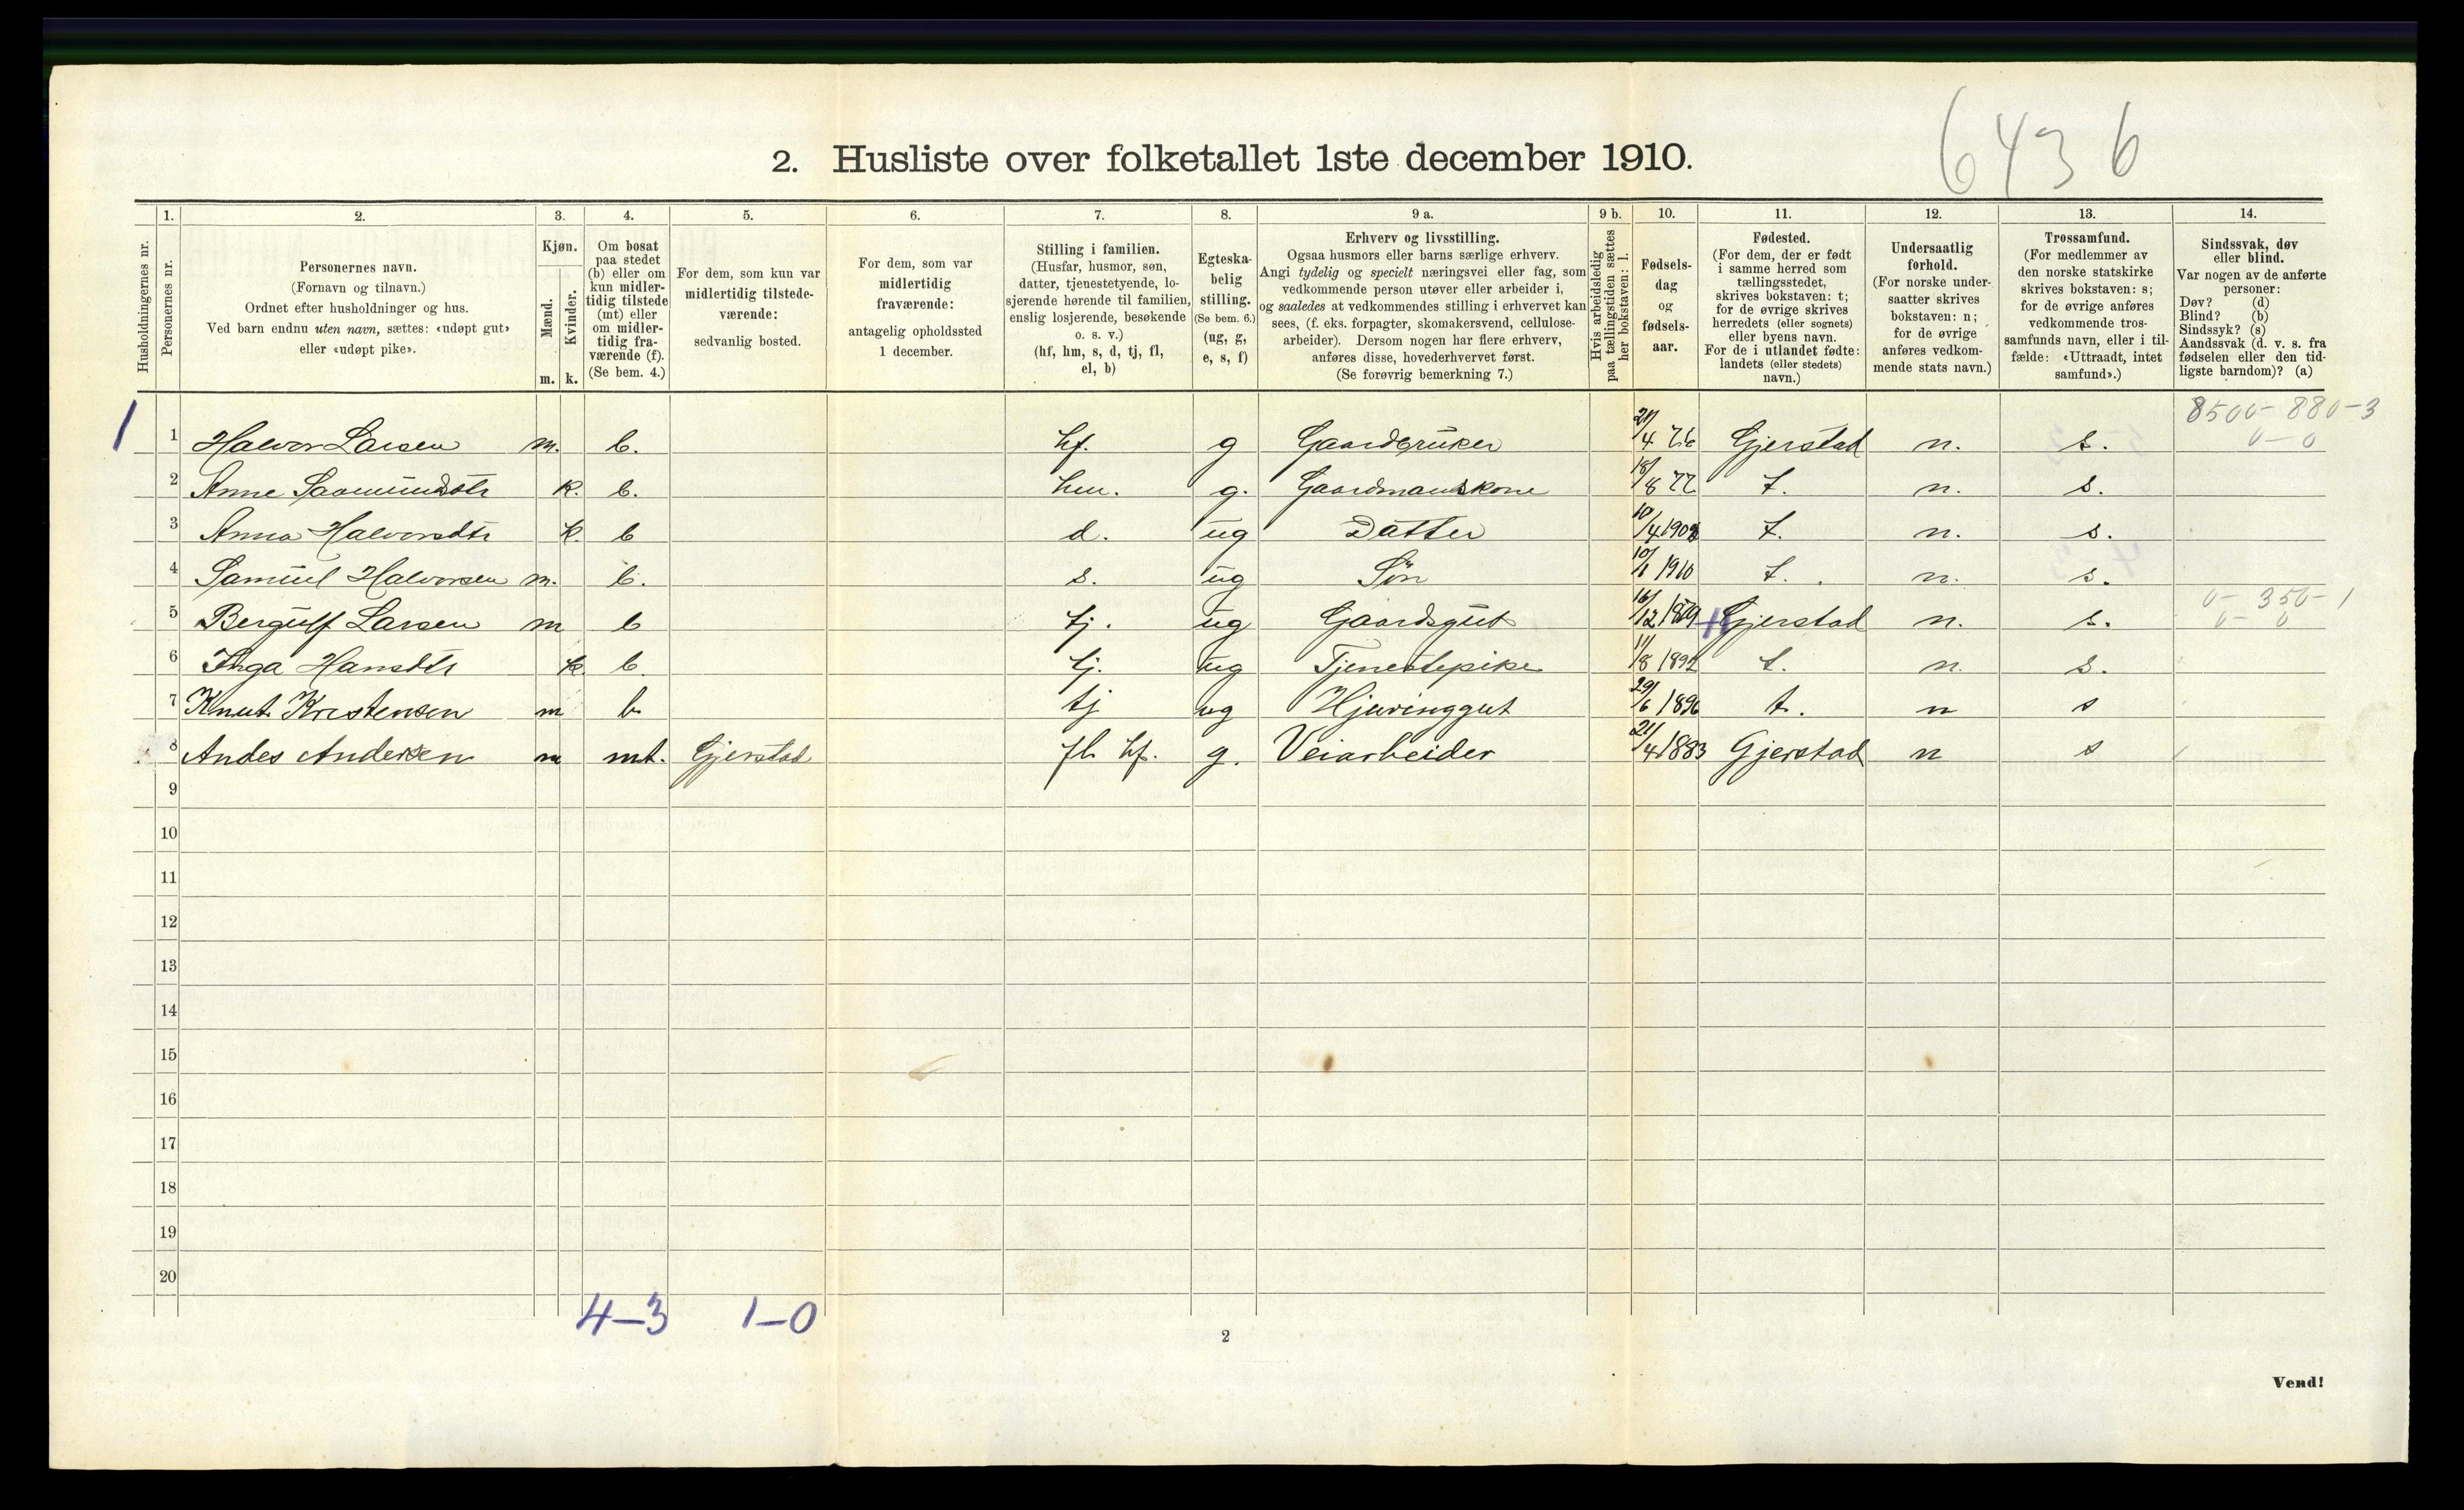 6436
2. Husliste over folketallet 1ste december 1910.
Husholdningernes nr.
1.
Personernes nr.
2.
Personernes navn.
(Fornavn og tilnavn.)
Ordnet efter husholdninger og hus.
Ved barn endnu uten navn, sættes: «udøpt gut»
eller «udøpt pike».
3.
Kjøn.
Mænd.
Kvinder.
m. k.
4.
Om bosat
paa stedet
(b) eller om
kun midler-
tidig tilstede
(mt) eller
om midler-
tidig fra-
værende (f).
(Se bem. 4.)
5.
For dem, som kun var
midlertidig tilstede-
værende:
sedvanlig bosted.
6.
For dem, som var
midlertidig
fraværende:
antagelig opholdssted
1 december.
7.
Stilling i familien.
(Husfar, husmor, søn,
datter, tjenestetyende, lo-
sjerende hørende til familien,
enslig losjerende, besøkende
o. s. v.)
(hf, hm, s, d, tj, fl,
el, b)
8.
Egteska-
belig
stilling.
(Se bem. 6.)
(ug, g,
e, s, f)
9 a.
Erhverv og livsstilling.
Ogsaa husmors eller barns særlige erhverv.
Angi tydelig og specielt næringsvei eller fag, som
vedkommende person utøver eller arbeider i,
og saaledes at vedkommendes stilling i erhvervet kan
sees, (f. eks. forpagter, skomakersvend, cellulose-
arbeider). Dersom nogen har flere erhverv,
anføres disse, hovederhvervet først.
(Se forøvrig bemerkning 7.)
9 b.
Hvis arbeidsledig
paa tællingstiden sættes
her bokstaven: l.
10.
Fødsels-
dag
og
fødsels-
aar.
11.
Fødested.
(For dem, der er født
i samme herred som
tællingsstedet,
skrives bokstaven: t;
for de øvrige skrives
herredets (eller sognets)
eller byens navn.
For de i utlandet fødte:
landets (eller stedets)
navn.)
12.
Undersaatlig
forhold.
(For norske under-
saatter skrives
bokstaven: n;
for de øvrige
anføres vedkom-
mende stats navn.)
13.
Trossamfund.
(For medlemmer av
den norske statskirke
skrives bokstaven: s;
for de øvrige anføres
vedkommende tros-
samfunds navn, eller i til-
fælde: «Uttraadt, intet
samfund».)
14.
Sindssvak, døv
eller blind.
Var nogen av de anførte
personer:
Døv? (d)
Blind? (b)
Sindssyk? (s)
Aandssvak (d. v. s. fra
fødselen eller den tid-
ligste barndom)? (a)
8500-880-3
1 1 Halvor Larsen m. b. hf. g Gaardbruker /4 76 Gjerstad n. s. 0-0
2 Anne Saamundsdtr k. b. hm. g. Gaardmandskone 18/8 77 t. n. s.
3 Anna Halvorsdtr k. b d. ug Datter 10/4 t. n. s.
4 Samuel Halvorsen m. b. s. ug Søn 10/1 1910 t. n. s.
0-350-1
5 Bergulf Larsen m b tj. ug Gaardsgut 16/12 1879 Gjerstad n. s. 0-0
6 Inga Hansdtr k. b. tj. ug Tjenestepike 11/8 1892 t. n. s.
7 Knut Kristensen m b. tj ug Hjuringgut 29/6 1896 t. n s
8 Andes Andersen m mt. Gjerstad fl hf. g. Veiarbeider 21/4 1883 Gjerstad n s
9
10
11
12
13
14
15
16
17
18
19
20
4-3 1-0
2
Vend!